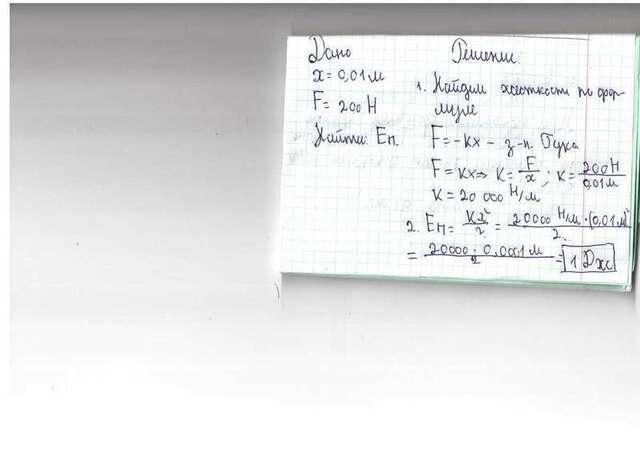 Дано
x = 0,01 м
F = 200 Н
Найти Eп.
Решение:
1. Найдем жесткость по фор-
муле
F = -kx - з-н. Гука
F = kx => k = F/x ; k = 200 Н/0,01 м
k = 20 000 Н/м
2. Eп = kx²/2 = 20000 Н/м · (0,01 м)²/2
= 20000 · 0,0001 м/2 = 1 Дж